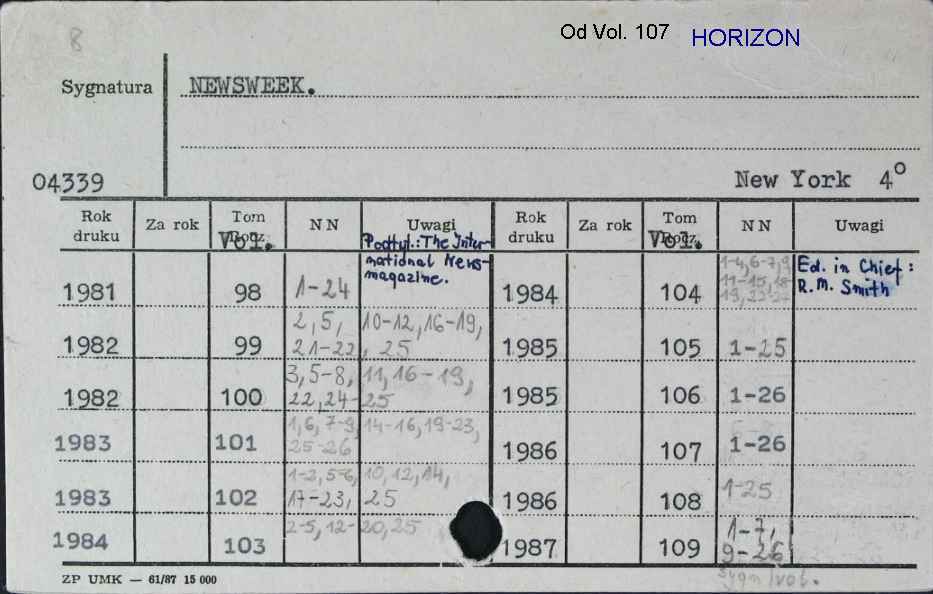 8 Od Vol. 107 HORIZON
Sygnatura NEWSWEEK.
04339 New York 4°
Rok druku Za rok Tom Vol. NN Uwagi Rok druku Za rok Tom Vol. NN Uwagi
Podtyt.: The International News-magazine.
1981 98 1-24
1982 99 2,5, 10-12,16-19, 21-22, 25
1982 100 3,5-8, 11,16-19, 22,24-25
1983 101 1,6,7-9, 14-16,19-23, 25-26
1983 102 1-2,5-6, 10,12,14, 17-23, 25
1984 103 2-5,12-20,25
1984 104 1-4,6-7,9 11-15,18- Ed. in Chief: R.M. Smith
1985 105 1-25
1985 106 1-26
1986 107 1-26
1986 108 1-25
1987 109 1-7, 9-26
ZP UMK — 61/87 15 000 sygn/vol.